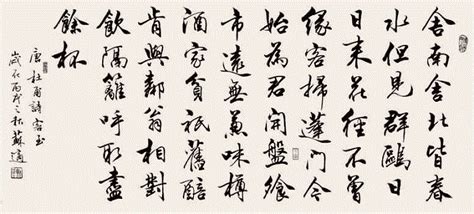 舍南舍北皆春
水但見群鷗日
日来花徑不曾
緣客掃蓬門今
始為君開盤飧
市遠無兼味樽
酒家貧祇舊醅
肯與鄰翁相對
飲隔籬呼取盡
餘杯
唐杜甫詩客至
歲在丙戌之秋蘇適